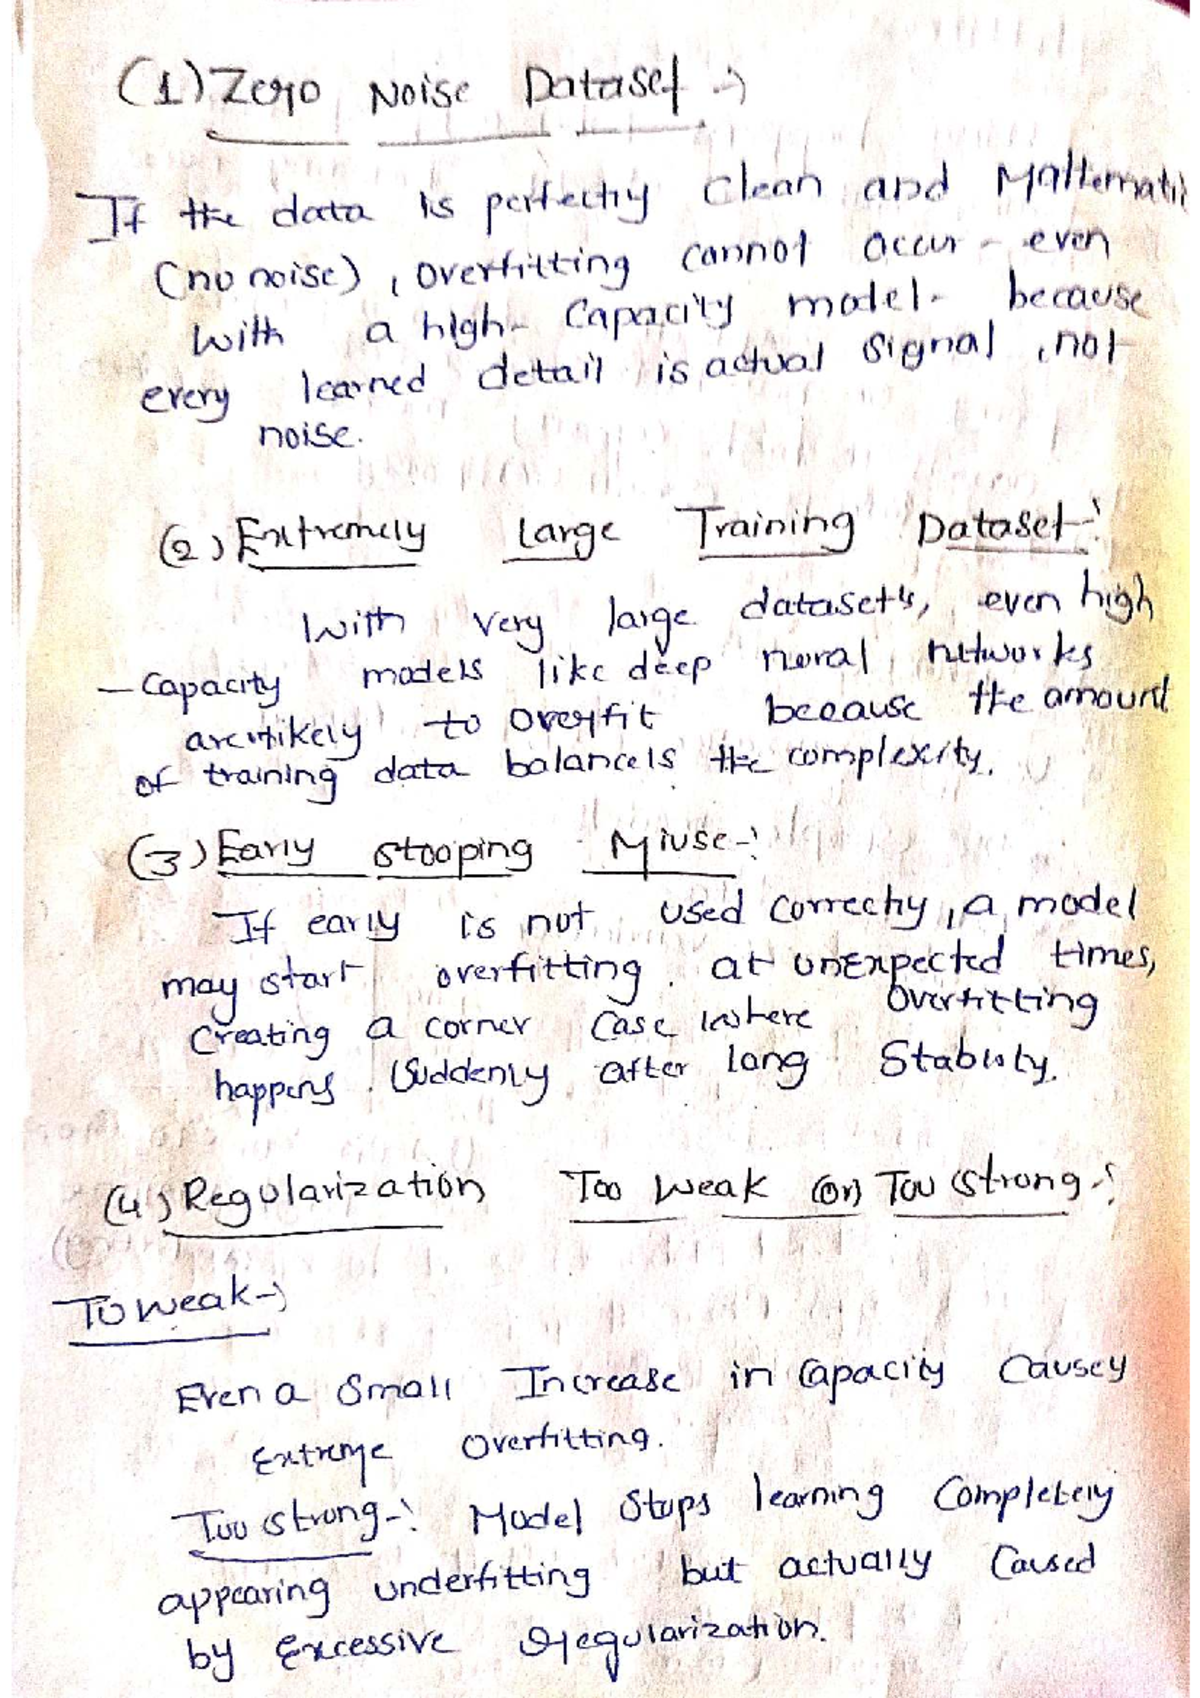 (1) Zero Noise Dataset :-
If the data is perfectly clean and Mathematic
(no noise), overfitting cannot occur - even
with a high- Capacity model- because
every learned detail is actual signal, not
noise.
(2) Extremely Large Training Dataset -:
With very large dataset's, even high
- Capacity models like deep nural networks
are to overfit because the amount
of training data balancels the complexity.
(3) Early stooping Miuse -:
If early is not used correctly, a model
may start overfitting at unexpected times,
Creating a corner case where overfitting
happens suddenly after long Stability.
(4) Regularization Too weak (or) Too strong -:
To weak -:
Even a small Increase in capacity causes
extreme overfitting.
Too strong -: Model stops learning completely
appearing underfitting but actually caused
by excessive regularization.